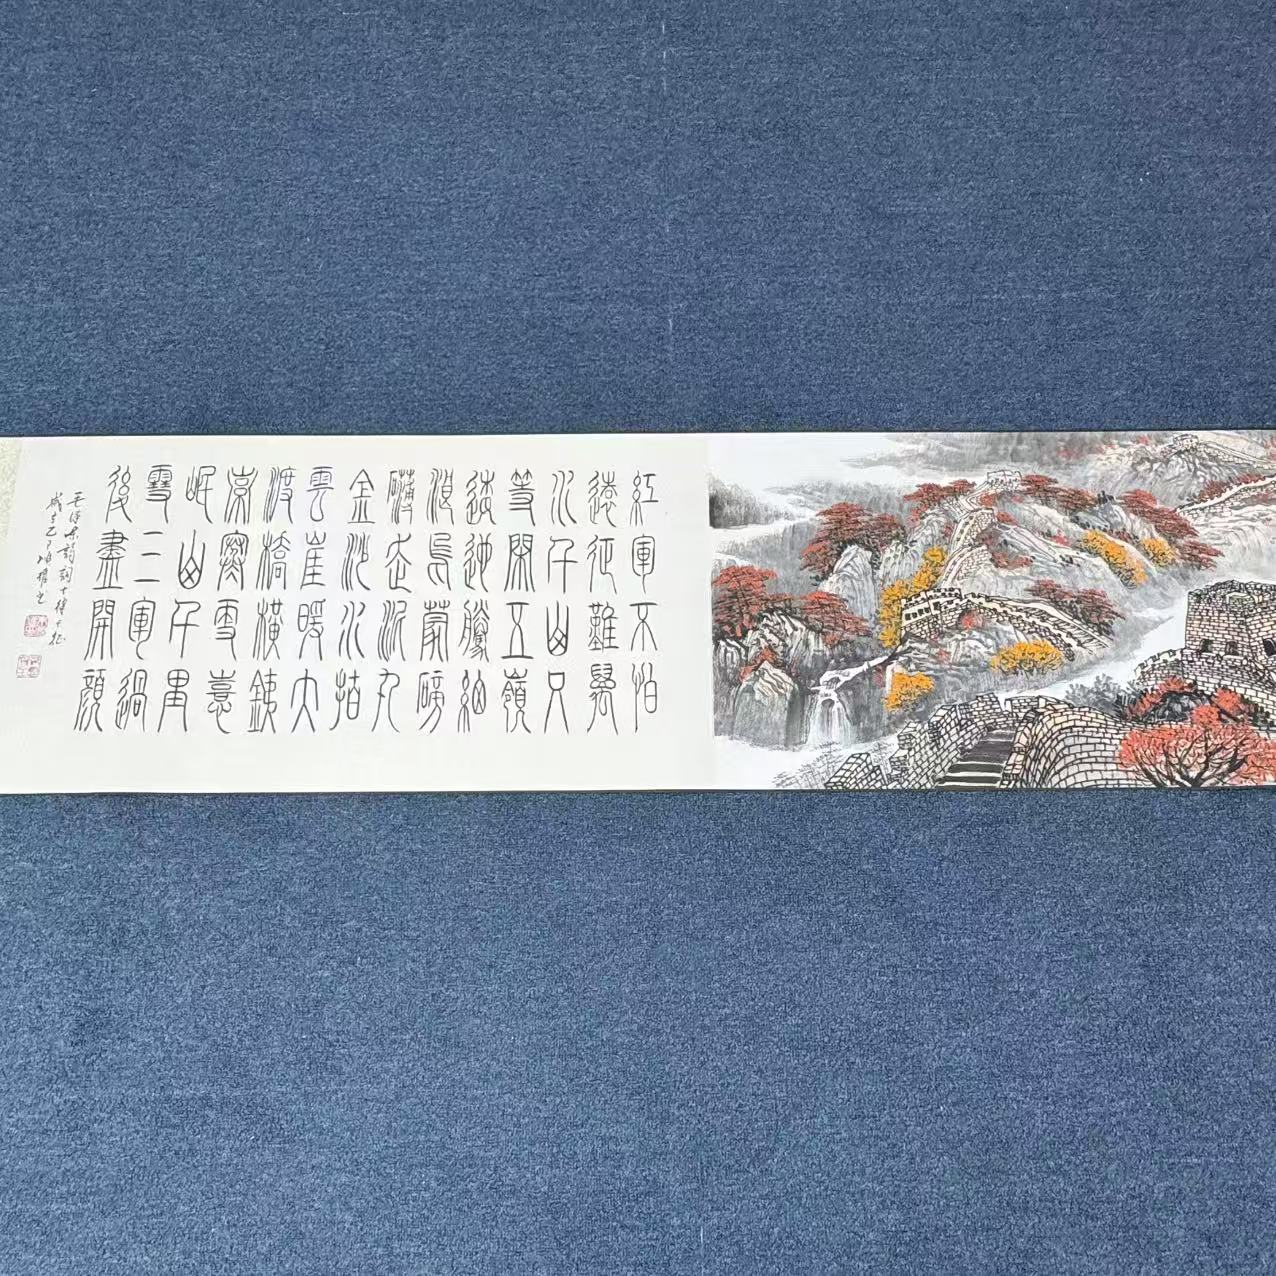 紅軍不怕
遠征難萬
水千山只
等閑五嶺
逶迤騰細
浪烏蒙磅
礴走泥丸
金沙水拍
雲崖暖大
渡橋橫鐵
索寒更喜
岷山千里
雪三軍過
後盡開顏
毛泽东詩詞七律长征